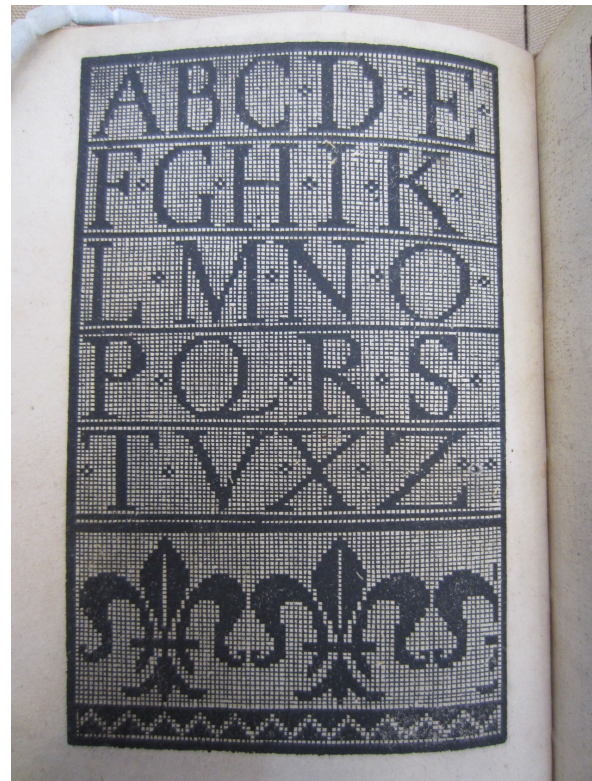 A B C · D · E ·
F · G · H · I · K ·
L · M · N · O ·
P · Q · R · S ·
· T · V · X · Z ·